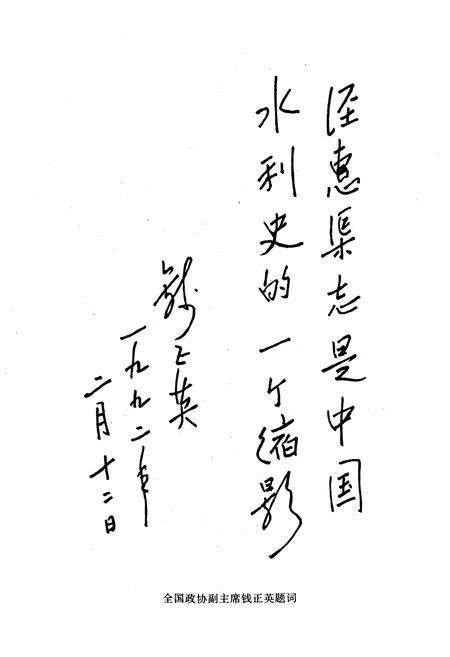 泾惠渠志是中国
水利史的一个缩影
钱正英
一九九二年
二月十二日
全国政协副主席钱正英题词